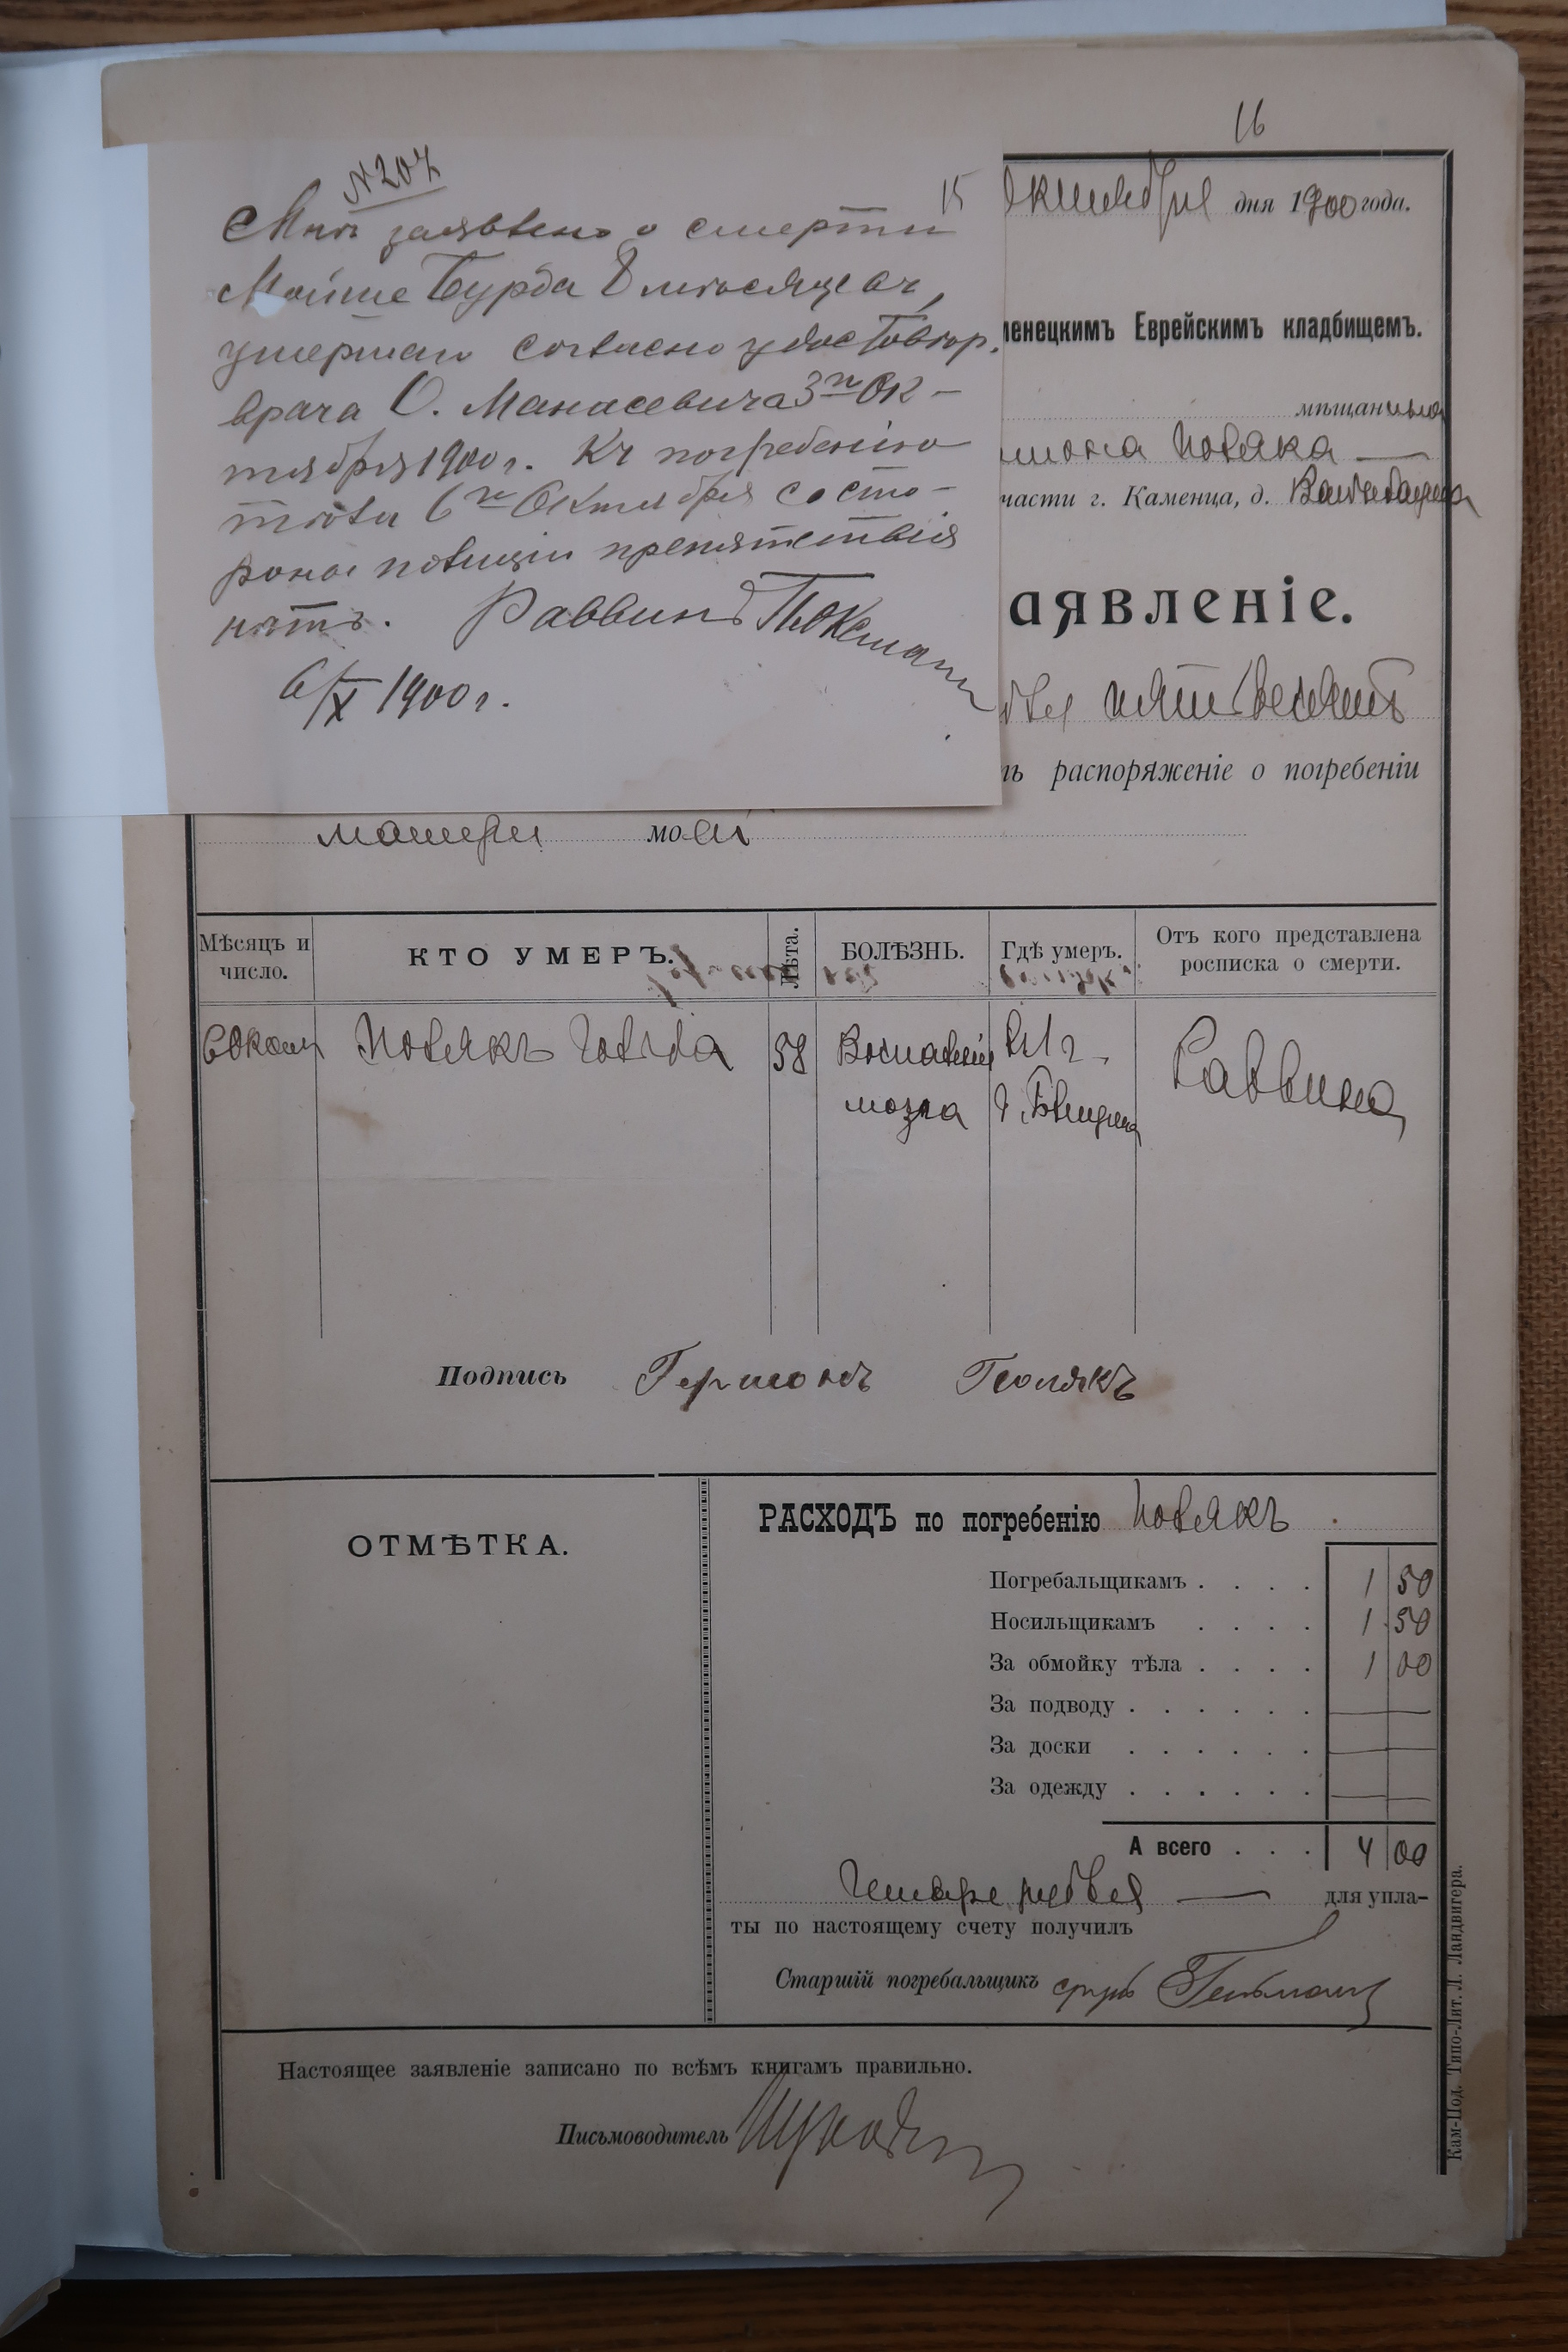 16
№ 207
15
Мнѣ заявлено о смерти
Мойше Бурда 8 мѣсяцевъ,
умершаго согласно удостовѣр.
врача О. Манасевича 3го Ок-
тября 1900 г. Къ погребенію
тѣла 6го Октября со сто-
роны полиціи препятствія
нѣтъ. Раввинъ
6/X 1900 г.
Октября дня 1900 года.
менецкимъ Еврейскимъ кладбищемъ.
мѣщанина
шона Поляка
части г. Каменца, д.
аявленіе.
бля пятьдесятъ
ть распоряженіе о погребеніи
матери моей
Мѣсяцъ и число.
КТО УМЕРЪ.
Лѣта.
БОЛѢЗНЬ.
Гдѣ умеръ.
Отъ кого представлена росписка о смерти.
6 Окт Полякъ Голда 58 Воспаленіе Раввина
мозга
Подпись Гершонъ Полякъ
ОТМѢТКА.
РАСХОДЪ по погребенію Полякъ
Погребальщикамъ . . . . 1 50
Носильщикамъ . . . . 1 50
За обмойку тѣла . . . . 1 00
За подводу . . . . . —
За доски . . . . . —
За одежду . . . . . —
А всего . . . 4 00
Четыре рубля — для упла-
ты по настоящему счету получилъ
Старшій погребальщикъ
Настоящее заявленіе записано по всѣмъ книгамъ правильно.
Письмоводитель
Кам-Под. Типо-Лит. Л. Ландвигера.